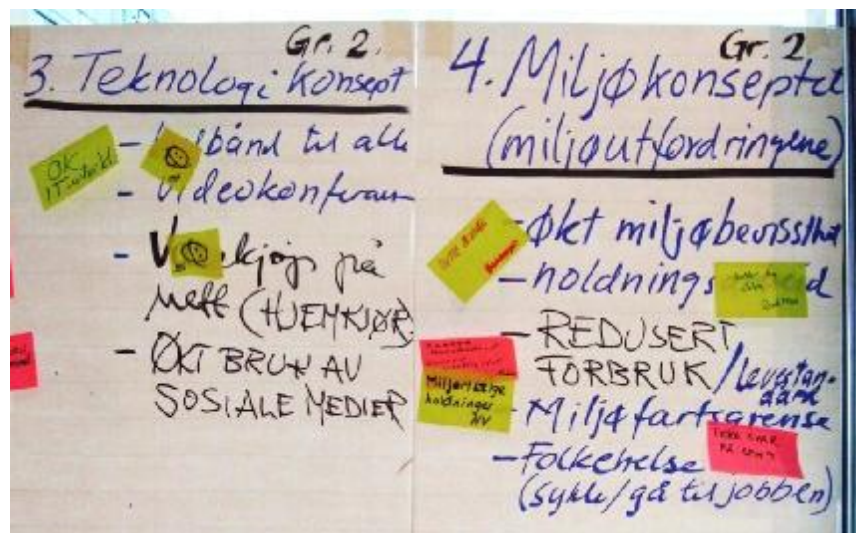 Gr. 2.
3. Teknologi konsept
bånd til alle
- Videokonferanse
på
nett (HJEMKJØR.)
- ØKT BRUK AV
SOSIALE MEDIER
ØK
Gr. 2
4. Miljøkonseptet
(miljøutfordringene)
- Økt miljøbevissthet
- holdnings
- REDUSERT
FORBRUK / Levestan-
dard
- Miljøfartsgrense
- Folkehelse
(sykle/gå til jobben)
holdninger